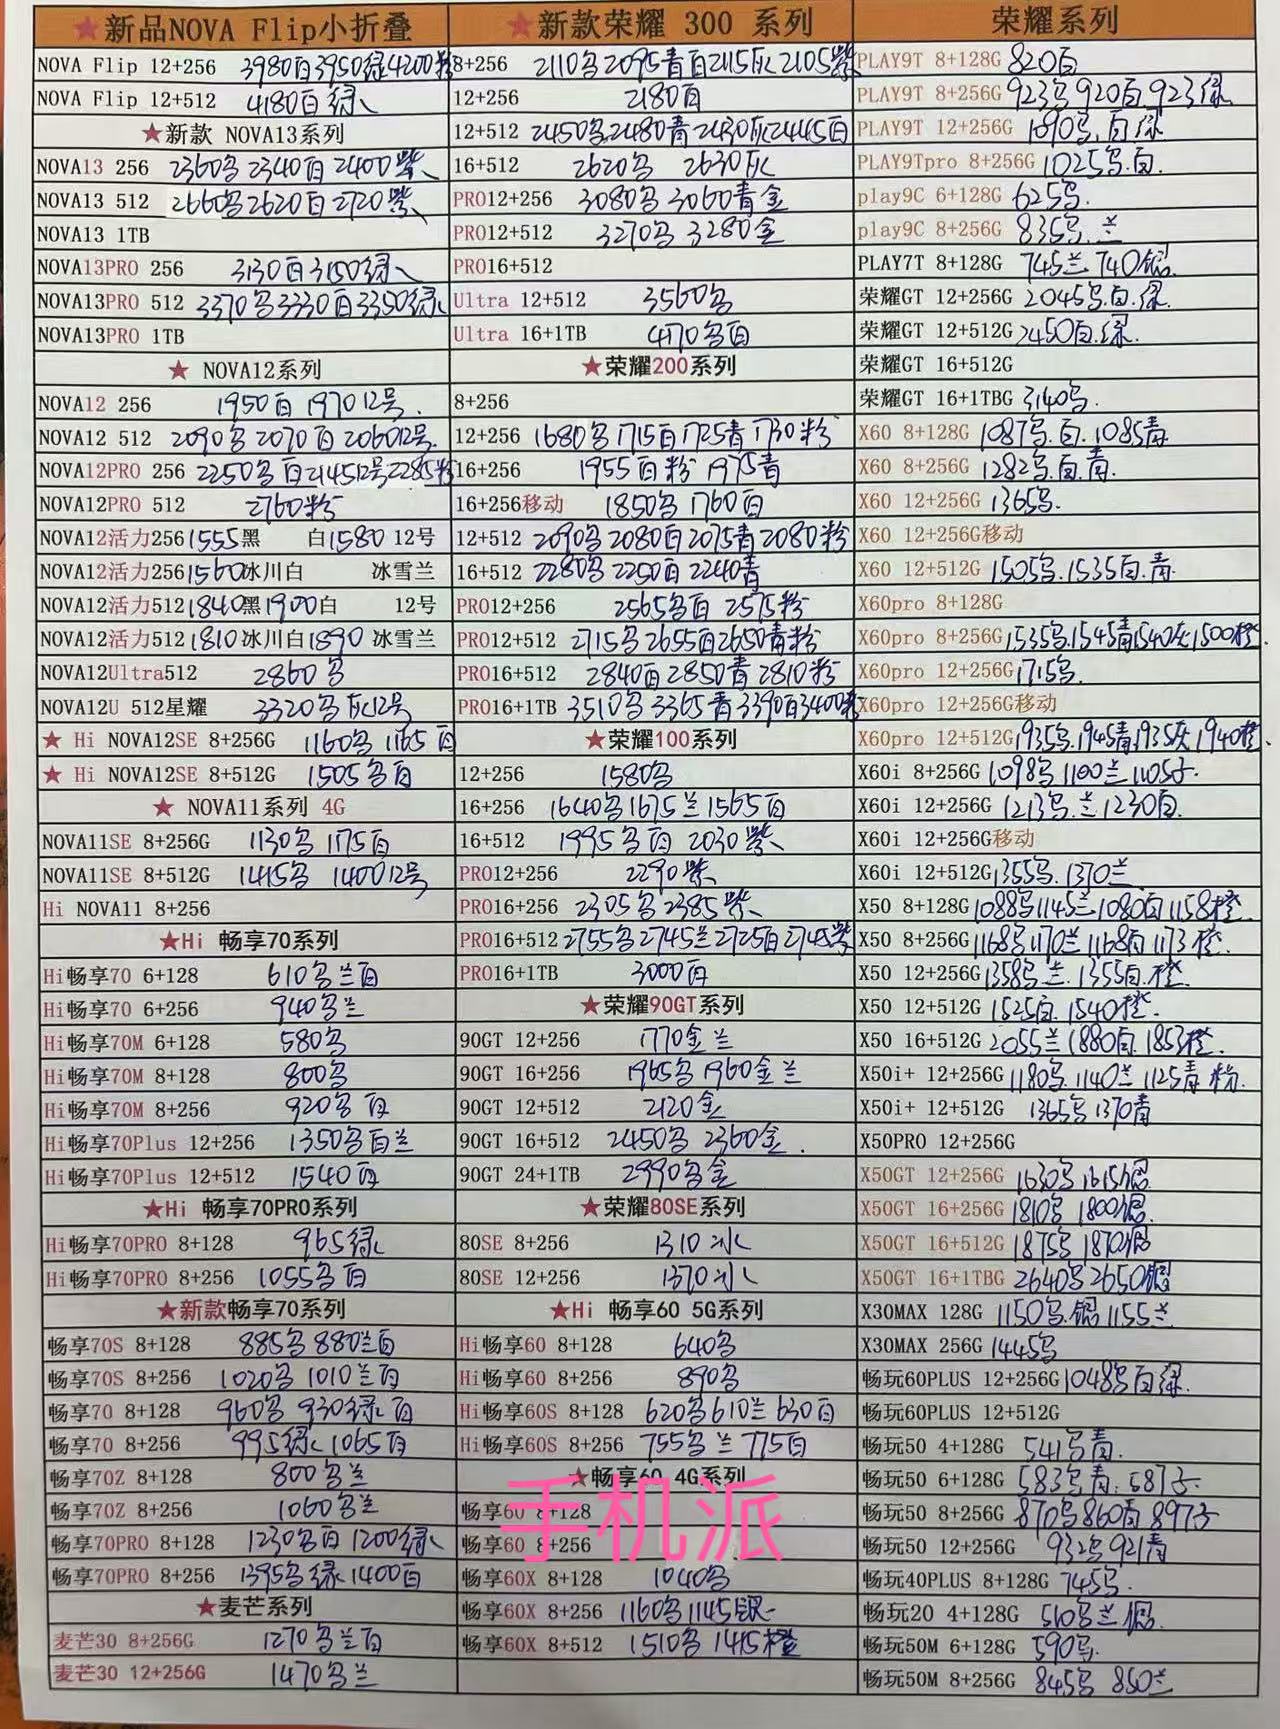 ★新品NOVA Flip小折叠
NOVA Flip 12+256 3980白3950绿4200粉
NOVA Flip 12+512 4180白绿
★新款 NOVA13系列
NOVA13 256 2360黑2340白2400紫
NOVA13 512 2660黑2620白2720紫
NOVA13 1TB
NOVA13PRO 256 3130白3150绿
NOVA13PRO 512 3370黑3330白3350绿
NOVA13PRO 1TB
★ NOVA12系列
NOVA12 256 1950白 1970 12号.
NOVA12 512 2090黑2070白2060 12号.
NOVA12PRO 256 2250黑白2145 12号2285粉
NOVA12PRO 512 2760粉
NOVA12活力256 1555黑 白1580 12号
NOVA12活力256 1560冰川白 冰雪兰
NOVA12活力512 1840黑1900白 12号
NOVA12活力512 1810冰川白1890 冰雪兰
NOVA12Ultra512 2860黑
NOVA12U 512星耀 3320黑灰12号
★ Hi NOVA12SE 8+256G 1160黑 1165白
★ Hi NOVA12SE 8+512G 1505黑白
★ NOVA11系列 4G
NOVA11SE 8+256G 1130黑 1175白
NOVA11SE 8+512G 1415黑 1400 12号
Hi NOVA11 8+256
★Hi 畅享70系列
Hi畅享70 6+128 610黑兰白
Hi畅享70 6+256 940黑兰
Hi畅享70M 6+128 580黑
Hi畅享70M 8+128 800黑
Hi畅享70M 8+256 920黑 白
Hi畅享70Plus 12+256 1350黑白兰
Hi畅享70Plus 12+512 1540白
★Hi 畅享70PRO系列
Hi畅享70PRO 8+128 965绿
Hi畅享70PRO 8+256 1055黑白
★新款畅享70系列
畅享70S 8+128 885黑 880兰白
畅享70S 8+256 1020黑 1010兰白
畅享70 8+128 960黑 930绿白
畅享70 8+256 995绿 1065白
畅享70Z 8+128 800黑兰
畅享70Z 8+256 1060黑兰
畅享70PRO 8+128 1230黑白 1200绿
畅享70PRO 8+256 1395黑绿1400白
★麦芒系列
麦芒30 8+256G 1270黑兰白
麦芒30 12+256G 1470黑兰
★新款荣耀 300 系列
8+256 2110黑2095青白2115灰2105紫
12+256 2180白
12+512 2450黑2480青2430灰2445白
16+512 2620黑 2630灰
PRO12+256 3080黑 3060青金
PRO12+512 3270黑 3280金
PRO16+512
Ultra 12+512 3560黑
Ultra 16+1TB 4170黑白
★荣耀200系列
8+256
12+256 1680黑1715白1725青1730粉
16+256 1955白粉 1975青
16+256移动 1850黑 1760白
12+512 2090黑2080白2075青2080粉
16+512 2280黑2250白2240青
PRO12+256 2565黑白 2575粉
PRO12+512 2715黑2655白2650青粉
PRO16+512 2840白2850青2810粉
PRO16+1TB 3510黑3365青3390白3400粉
★荣耀100系列
12+256 1580黑
16+256 1640黑1675兰1565白
16+512 1995黑白 2030紫
PRO12+256 2290紫
PRO16+256 2305黑2385紫
PRO16+512 2755黑2745兰2725白2745紫
PRO16+1TB 3000白
★荣耀90GT系列
90GT 12+256 1770金兰
90GT 16+256 1965黑1960金兰
90GT 12+512 2120金
90GT 16+512 2450黑 2360金.
90GT 24+1TB 2990黑金
★荣耀80SE系列
80SE 8+256 1310冰
80SE 12+256 1370冰
★Hi 畅享60 5G系列
Hi畅享60 8+128 640黑
Hi畅享60 8+256 890黑
Hi畅享60S 8+128 620黑610兰630白
Hi畅享60S 8+256 755黑兰775白
★畅享60 4G系列
畅享60 8+128
畅享60 8+256
畅享60X 8+128 1040黑
畅享60X 8+256 1160黑1145银
畅享60X 8+512 1510黑1415橙
荣耀系列
PLAY9T 8+128G 820白
PLAY9T 8+256G 923黑920白923绿
PLAY9T 12+256G 1090黑.白绿
PLAY9Tpro 8+256G 1025黑.白.
play9C 6+128G 625黑.
play9C 8+256G 835黑.兰
PLAY7T 8+128G 745兰740银.
荣耀GT 12+256G 2045黑.白.绿.
荣耀GT 12+512G 2450白.绿.
荣耀GT 16+512G
荣耀GT 16+1TBG 3140黑.
X60 8+128G 1087黑.白.1085青
X60 8+256G 1282黑.白.青.
X60 12+256G 1365黑.
X60 12+256G移动
X60 12+512G 1505黑.1535白.青.
X60pro 8+128G
X60pro 8+256G 1535黑1545青1540灰1500橙.
X60pro 12+256G 1715黑.
X60pro 12+256G移动
X60pro 12+512G 1935黑.1945青1935灰1940橙.
X60i 8+256G 1098黑1100兰1105子.
X60i 12+256G 1213黑.兰1230白.
X60i 12+256G移动
X60i 12+512G 1355黑.1370兰.
X50 8+128G 1088黑1145兰1080白1158橙.
X50 8+256G 1168黑1170兰1168白1173橙.
X50 12+256G 1358黑兰.1355白.橙.
X50 12+512G 1525白.1540橙.
X50 16+512G 2055兰1880白.1853橙.
X50i+ 12+256G 1180黑.1140兰1125青 粉.
X50i+ 12+512G 1365黑1370青
X50PRO 12+256G
X50GT 12+256G 1630黑1615银
X50GT 16+256G 1810黑 1800银.
X50GT 16+512G 1875黑 1870银
X50GT 16+1TBG 2640黑2650银
X30MAX 128G 1150黑.银1155兰
X30MAX 256G 1445黑
畅玩60PLUS 12+256G 1048黑白绿.
畅玩60PLUS 12+512G
畅玩50 4+128G 541黑青.
畅玩50 6+128G 583黑青.587子
畅玩50 8+256G 870黑860青897子
畅玩50 12+256G 932黑921青
畅玩40PLUS 8+128G 745黑.
畅玩20 4+128G 510黑兰银.
畅玩50M 6+128G 590黑.
畅玩50M 8+256G 845黑 850兰
手机派